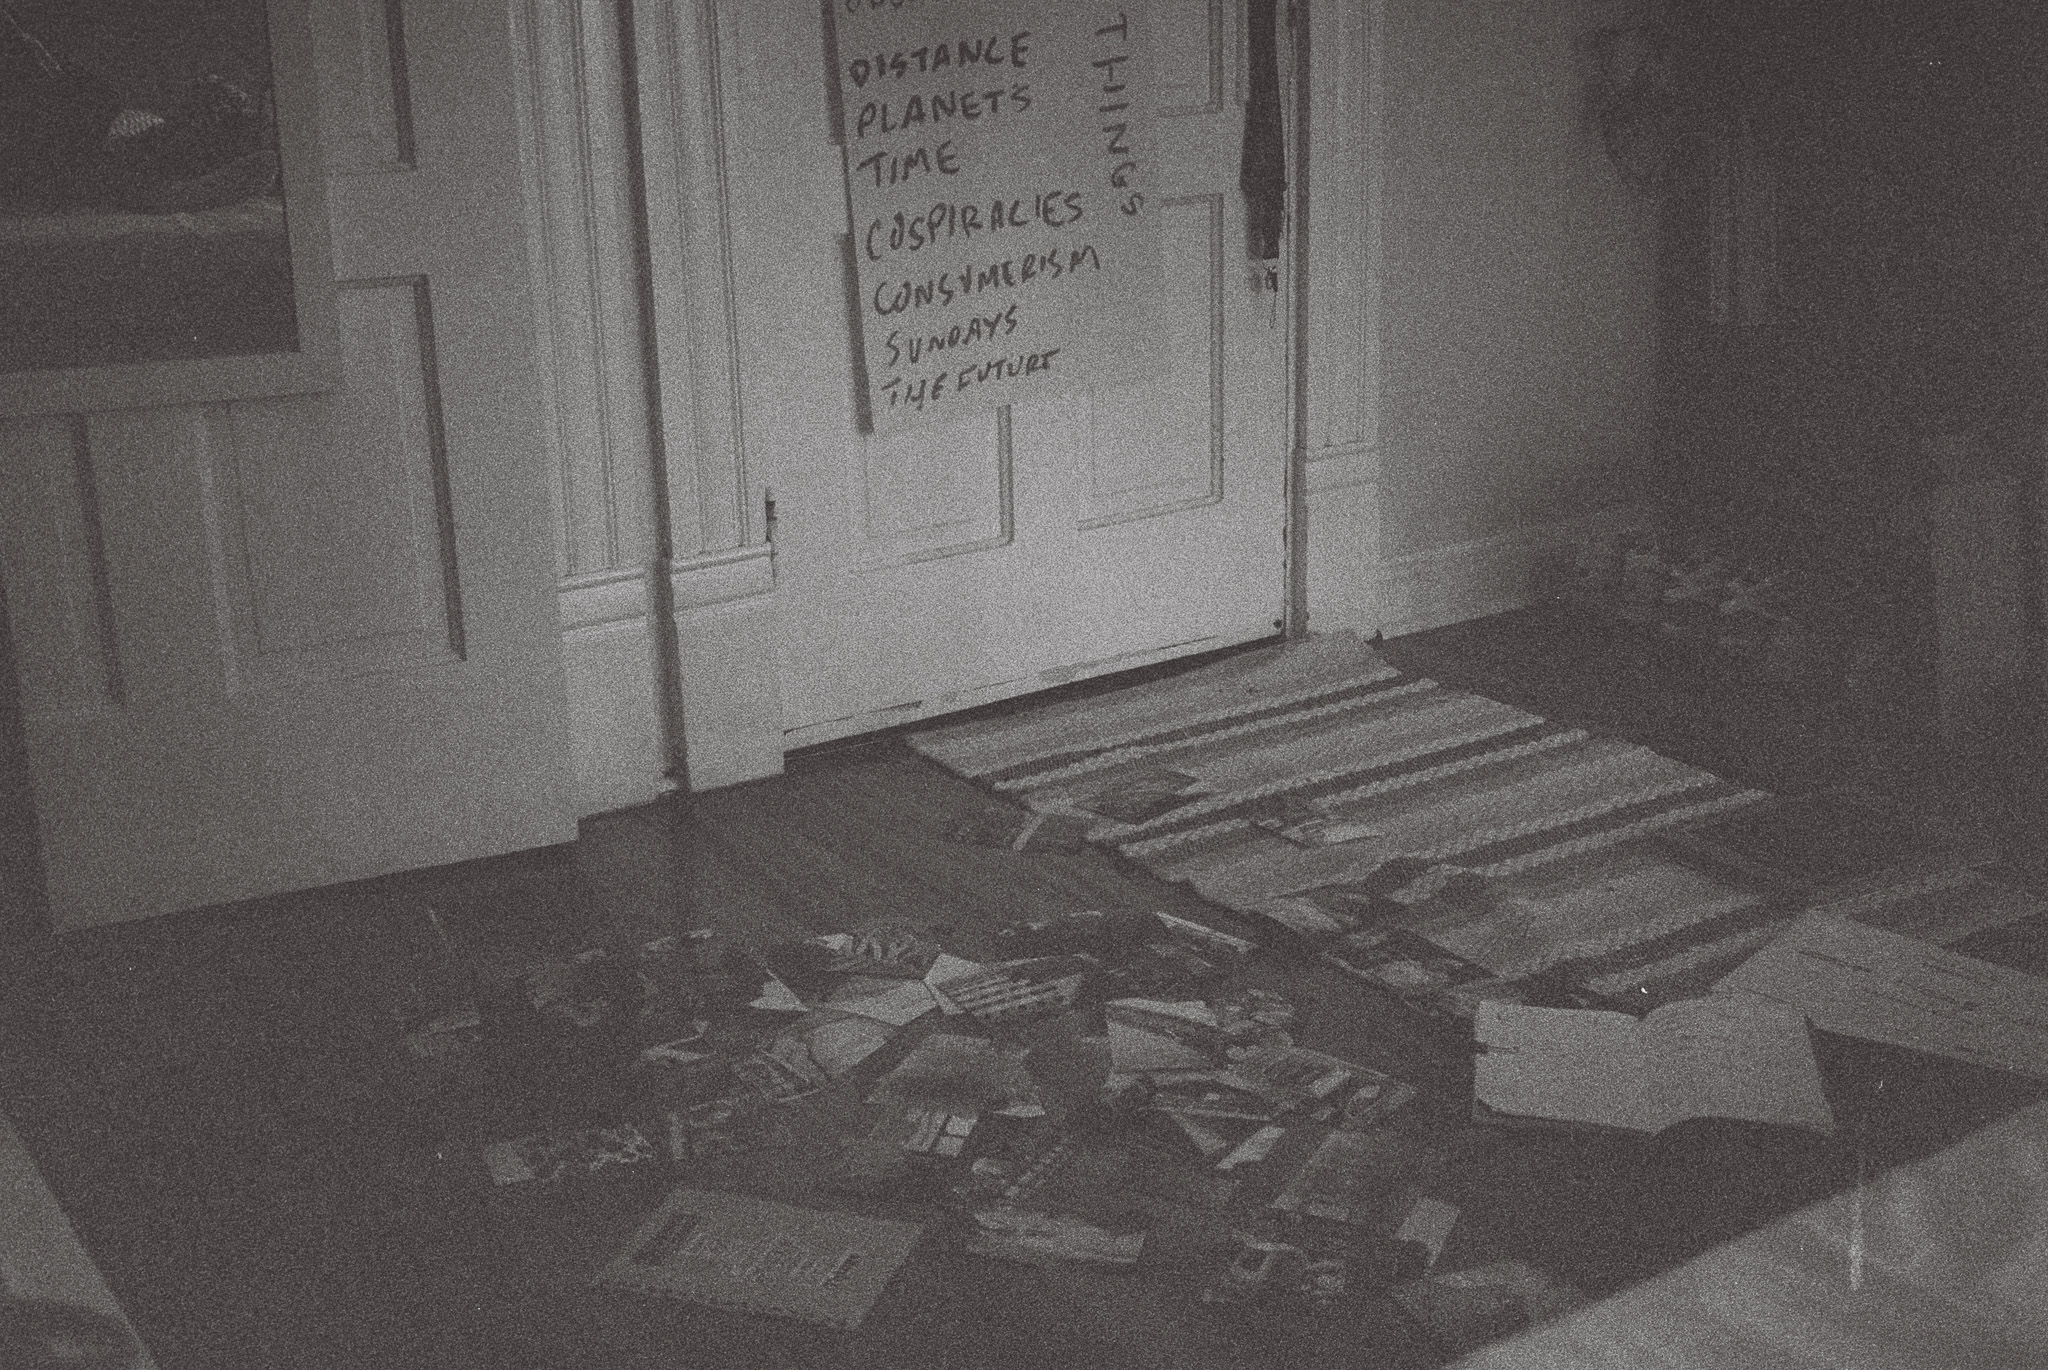 DISTANCE
PLANETS
TIME
COSPIRACIES
CONSUMERISM
SUNDAYS
THE FUTURE
THINGS